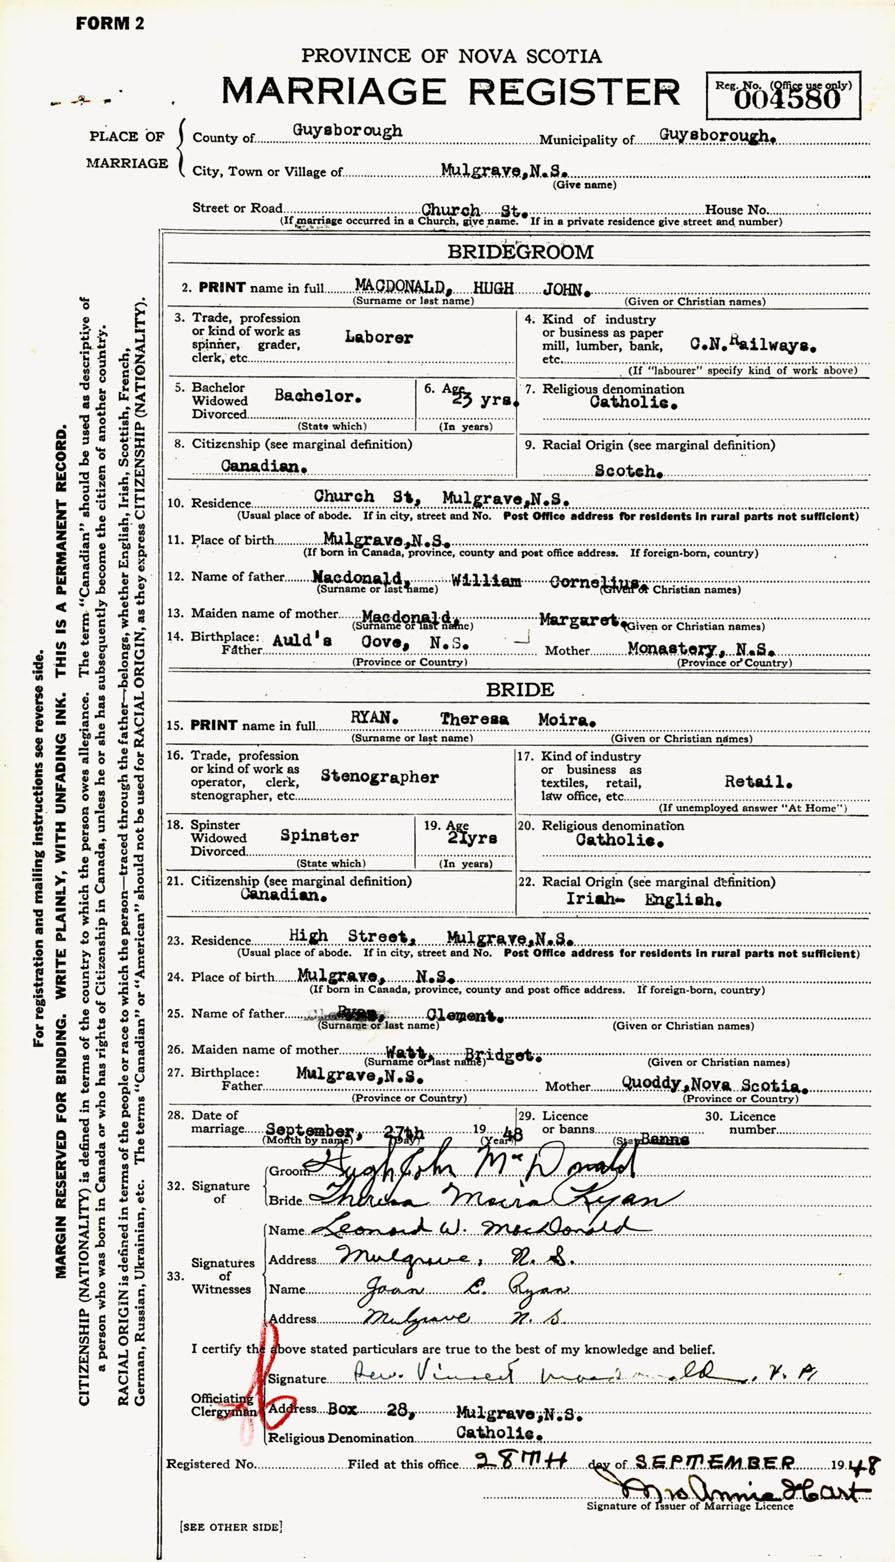 FORM 2
PROVINCE OF NOVA SCOTIA
MARRIAGE REGISTER
Reg. No. (Office use only)
004580
PLACE OF MARRIAGE
County of Guysborough Municipality of Guysborough.
City, Town or Village of Mulgrave,N.S.
(Give name)
Street or Road Church St. House No.
(If marriage occurred in a Church, give name. If in a private residence give street and number)
BRIDEGROOM
2. PRINT name in full MACDONALD, HUGH JOHN.
(Surname or last name) (Given or Christian names)
3. Trade, profession or kind of work as spinner, grader, clerk, etc. Laborer
4. Kind of industry or business as paper mill, lumber, bank, etc. C.N.Railways.
(If "labourer" specify kind of work above)
5. Bachelor Widowed Divorced Bachelor.
(State which)
6. Age yrs.
(In years)
7. Religious denomination
Catholic.
8. Citizenship (see marginal definition)
Canadian.
9. Racial Origin (see marginal definition)
Scotch.
10. Residence Church St, Mulgrave,N.S.
(Usual place of abode. If in city, street and No. Post Office address for residents in rural parts not sufficient)
11. Place of birth Mulgrave,N.S.
(If born in Canada, province, county and post office address. If foreign-born, country)
12. Name of father Macdonald, William Cornelius.
(Surname or last name) (Given or Christian names)
13. Maiden name of mother Macdonald, Margaret.
(Surname or last name) (Given or Christian names)
14. Birthplace: Father Auld's Cove, N.S. Mother Monastery, N.S.
(Province or Country) (Province or Country)
BRIDE
15. PRINT name in full RYAN. Theresa Moira.
(Surname or last name) (Given or Christian names)
16. Trade, profession or kind of work as operator, clerk, stenographer, etc. Stenographer
17. Kind of industry or business as textiles, retail, law office, etc. Retail.
(If unemployed answer "At Home")
18. Spinster Widowed Divorced Spinster
(State which)
19. Age 21yrs
(In years)
20. Religious denomination
Catholic.
21. Citizenship (see marginal definition)
Canadian.
22. Racial Origin (see marginal definition)
Irish- English.
23. Residence High Street, Mulgrave,N.S.
(Usual place of abode. If in city, street and No. Post Office address for residents in rural parts not sufficient)
24. Place of birth Mulgrave, N.S.
(If born in Canada, province, county and post office address. If foreign-born, country)
25. Name of father Ryan, Clement.
(Surname or last name) (Given or Christian names)
26. Maiden name of mother Watt, Bridget.
(Surname or last name) (Given or Christian names)
27. Birthplace: Father Mulgrave,N.S. Mother Quoddy,Nova Scotia.
(Province or Country) (Province or Country)
28. Date of marriage September, 27th 1948
(Month by name) (Day) (Year)
29. Licence or banns Banns
30. Licence number
32. Signature of
Groom Hugh John McDonald
Bride Theresa Moira Ryan
33. Signatures of Witnesses
Name Leonard W. MacDonald
Address Mulgrave, N.S.
Name Joan C. Ryan
Address Mulgrave N S.
I certify the above stated particulars are true to the best of my knowledge and belief.
Officiating Clergyman
Signature Rev. Vincent
Address Box 28, Mulgrave,N.S.
Religious Denomination Catholic.
Registered No. Filed at this office 28TH day of SEPTEMBER 1948
Mrs Annie Hart
Signature of Issuer of Marriage Licence
[SEE OTHER SIDE]
For registration and mailing instructions see reverse side.
MARGIN RESERVED FOR BINDING. WRITE PLAINLY, WITH UNFADING INK. THIS IS A PERMANENT RECORD.
CITIZENSHIP (NATIONALITY) is defined in terms of the country to which the person owes allegiance. The term "Canadian" should be used as descriptive of
a person who was born in Canada or who has rights of Citizenship in Canada, unless he or she has subsequently become the citizen of another country.
RACIAL ORIGIN is defined in terms of the people or race to which the person—traced through the father—belongs, whether English, Irish, Scottish, French,
German, Russian, Ukrainian, etc. The terms "Canadian" or "American" should not be used for RACIAL ORIGIN, as they express CITIZENSHIP (NATIONALITY).